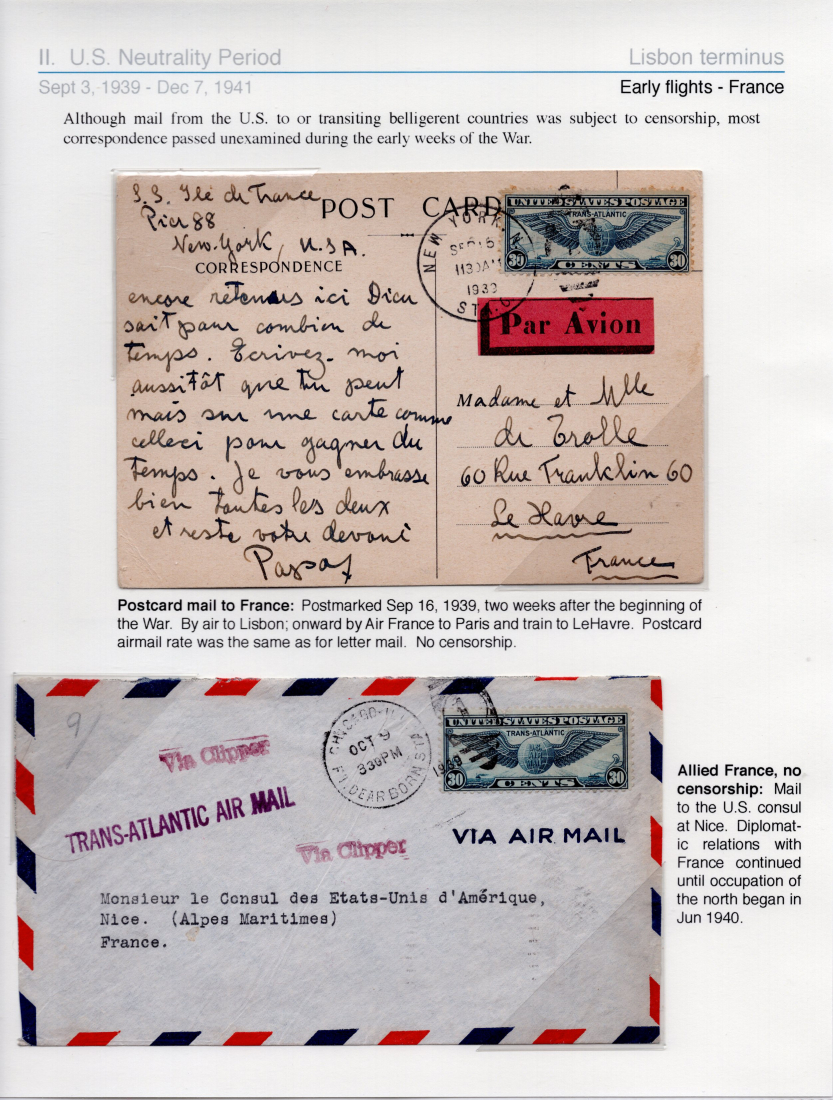 II. U.S. Neutrality Period
Lisbon terminus
Sept 3, 1939 - Dec 7, 1941
Early flights - France
Although mail from the U.S. to or transiting belligerent countries was subject to censorship, most
correspondence passed unexamined during the early weeks of the War.
S.S. Ile de France
Pier 88
New-York, U.S.A.
POST CARD
CORRESPONDENCE
encore retenus ici Dieu
sait pour combien de
temps. Ecrivez-moi
aussitôt que tu peut
mais sur une carte comme
celleci pour gagner du
temps. Je vous embrasse
bien toutes les deux
et reste votre devoué
NEW YORK, N.
SEP 16
1130AM
1939
STA.
UNITED STATES POSTAGE
TRANS-ATLANTIC
30 CENTS 30
Par Avion
Madame et Mlle
de Trolle
60 Rue Franklin 60
Le Havre
France
Postcard mail to France: Postmarked Sep 16, 1939, two weeks after the beginning of
the War. By air to Lisbon; onward by Air France to Paris and train to LeHavre. Postcard
airmail rate was the same as for letter mail. No censorship.
9/
Via Clipper
TRANS-ATLANTIC AIR MAIL
Via Clipper
CHICAGO, ILL.
OCT 9
330PM
1939
FT. DEARBORN STA.
UNITED STATES POSTAGE
TRANS-ATLANTIC
30 CENTS 30
VIA AIR MAIL
Monsieur le Consul des Etats-Unis d'Amérique,
Nice. (Alpes Maritimes)
France.
Allied France, no
censorship: Mail
to the U.S. consul
at Nice. Diplomat-
ic relations with
France continued
until occupation of
the north began in
Jun 1940.